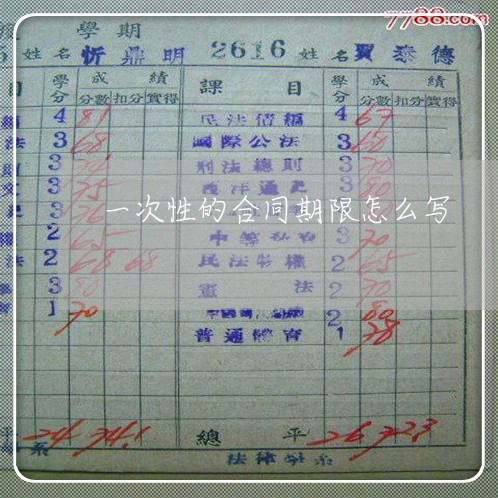 7788.com
學期
姓名 忻鼎明 2616 姓名 賈泰德
目 學分 成績 課目 學分 成績
分數 扣分 實得 分數 扣分 實得
4 81 民法債編 4 67
法 3 68 國際公法 3 60
3 刑法總則 3 70
3 75 西洋通史 3 80
3 76
一次性的合同期限怎么写
2 65 3 70
法 2 68 68 民法物權 2 65
3 80 憲法 2 70
1 70 2 80
普通體育 1 78
平 24 74.1 總平 26 72.3
系 法律學系